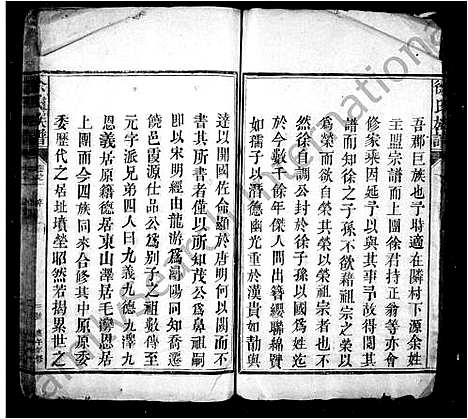 吾郡巨族也予時適在隣村下源余姓
主盟宗譜而上團徐君持正翁等亦會
修家乘因延予以與其事予故得閱其
譜而知徐之子孫不欲藉祖宗之榮以
為榮而欲自榮其榮以榮祖宗者也不
然徐自調公封於徐子孫以國為姓迄
於今數千餘年傑人間出簪纓聯綿贒
如孺子以潛德幽光重於漢貴如勣與
達以開國佐命顯於唐明何以闕而不
書其所書者僅以所知茂公為鼻祖嗣
即以宋明經由龍游為潯陽同知喬遷
饒邑霞源仕品公為別子之祖數傳至
元字派兄弟四人曰九義九德九澤九
恩義居原德居東山澤居毛灣恩居
上團而今四族同來合修其中原原委
委歷代之居址墳塋昭然若揭累世之
徐氏族譜